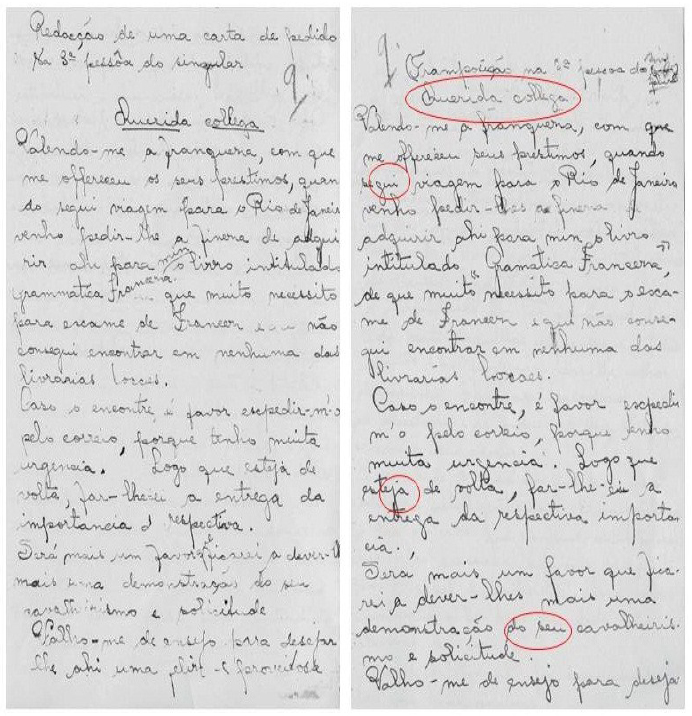 Redacção de uma carta de pedido
na 3ª pessôa do singular
9.
Querida collega
Valendo-me a franquesa, com que
me offereceu os seus prestimos, quan
do segui viagem para o Rio de Janeiro
venho pedir-lhe a finesa de adqui
rir ahi para mim o livro intitulado
Grammatica Francesa que muito necessito
para escame de Francez e não
consegui encontrar em nenhuma das
livrarias locaes.
Caso o encontre, é favor escpedir-m'o
pelo correio, porque tenho muita
urgencia. Logo que esteja de
volta, far-lhe-eu a entrega da
importancia respectiva.
Será mais um favor que ficarei a dever-lh
mais uma demonstração do seu
cavalheirismo e solicitude
Valho-me de ensejo para desejar
lhe ahi uma feliz e proveitosa
9.
Transposição na 3ª pessoa do
Querida collega
Valendo-me a franquesa, com que
me offereceu seus prestimos, quando
segui viagem para o Rio de Janeiro
venho pedir-lhes a finesa
adquirir ahi para mim, o livro
intitulado "Gramatica Francesa",
de que muito necessito para o esca-
me de Francez e que não conse-
gui encontrar em nenhuma das
livrarias locaes.
Caso o encontre, é favor escpedi
m'o pelo correio, porque tenho
muita urgencia. Logo que
esteja de volta, far-lhe-eu a
entrega da respectiva importa-
cia.,
Será mais um favor que fica-
rei a dever-lhes mais uma
demonstração do seu cavalheiris-
mo e solicitude.
Valho-me de ensejo para deseja